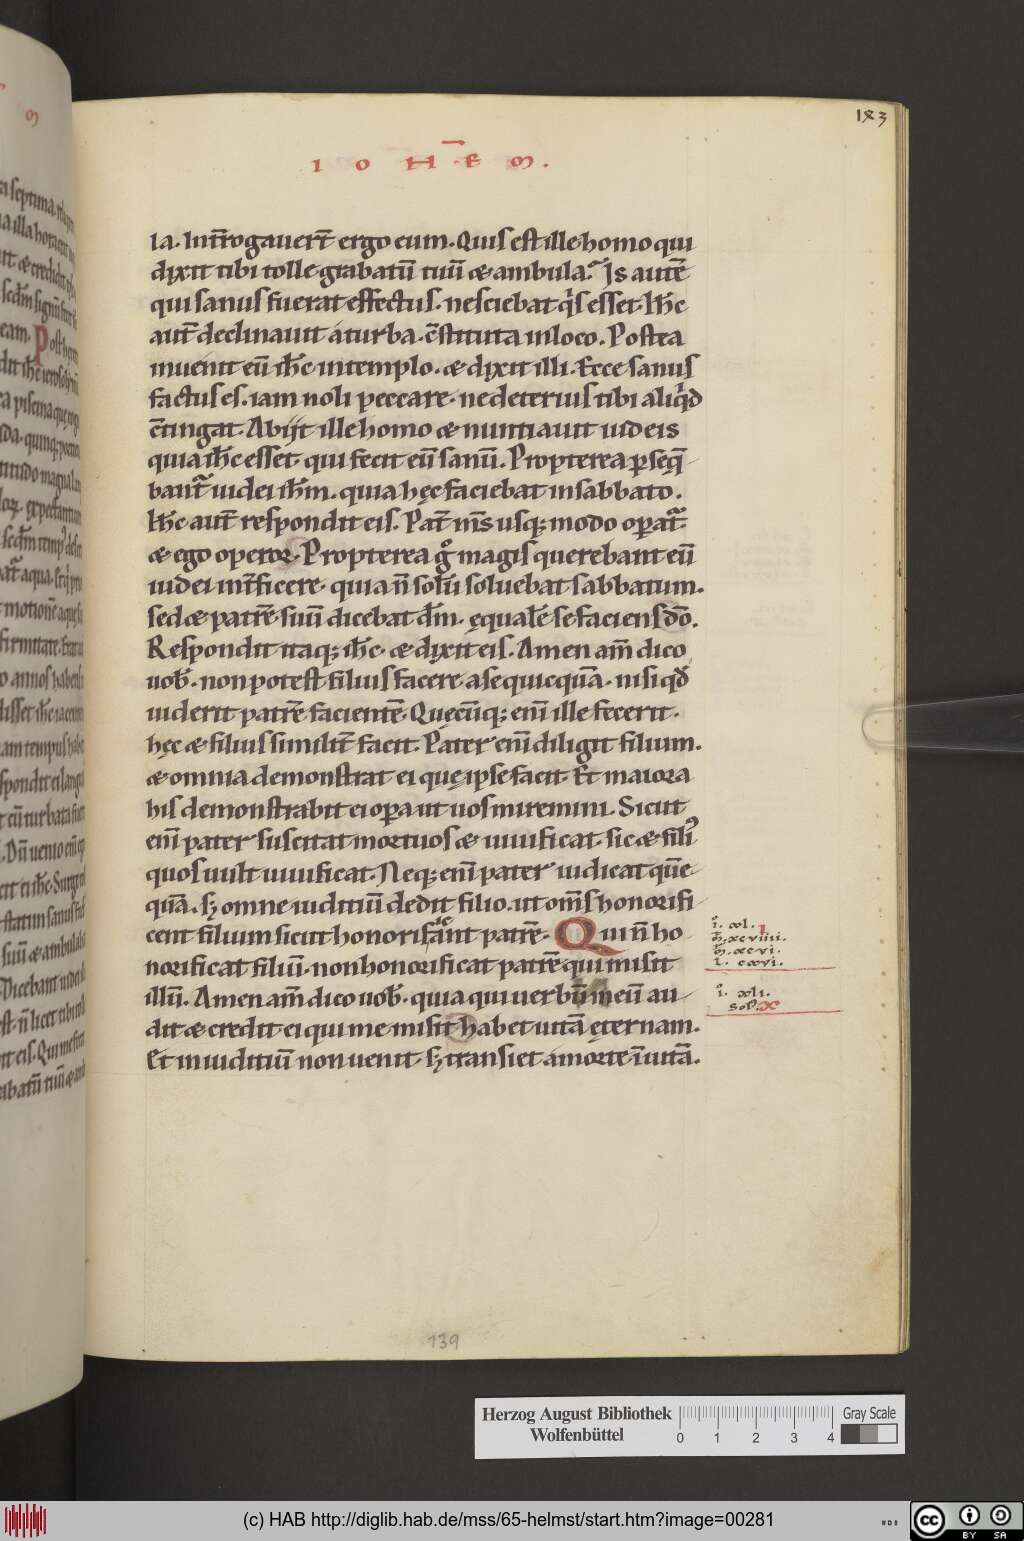 183
IOHEM.
la. Int̄rogauer̄t ergo eum. Quis est ille homo qui
dixit tibi tolle grabatū tuū & ambula. Is autē
qui sanus fuerat effectus. nesciebat q's esset. Ih̄c
aut̄ declinauit a turba. c̄stituta in loco. Postea
inuenit eū ih̄c in templo. & dixit illi. Ecce sanus
factus es. iam noli peccare. ne deterius tibi aliq'd
c̄tingat. Abijt ille homo & nuntiauit iudeis
quia ih̄c esset qui fecit eū sanū. Propterea ꝑseq̄
bant' iudei ih̄m. quia hęc faciebat in sabbato.
Ih̄c aut̄ respondit eis. Pat̄ m̄s usq; modo oꝑat'
& ego operor. Propterea g° magis querebant eū
iudei int̄ficere. quia n̄ solū soluebat sabbatum.
sed & patrē suū dicebat dm̄. ęqualē se faciens dō.
Respondit itaq; ih̄c. & dixit eis. Amen am̄ dico
uob̄. non potest filius facere a se quicquā. nisi qđ
uiderit patrē facientē. Quęcūq; enī ille fecerit.
hęc & filius similit̄ facit. Pater enī diligit filium.
& omnia demonstrat ei quę ipse facit. Et maiora
his demonstrabit ei oꝑa ut uos miremini. Sicut
enī pater suscitat mortuos & uiuificat. sic & fili'
quos uult uiuificat. Neq; enī pater iudicat quē
quā. sꝫ omne iuditiū dedit filio. ut om̄s honorifi
cent filium sicut honorificant patrē. Qui n̄ ho
norificat filiū. non honorificat patrē qui misit
illū. Amen am̄ dico uob̄. quia qui uerbū meū au
dit & credit ei qui me misit habet uitā ęternam.
Et in iuditiū non uenit sꝫ transiet a morte ī uitā.
i. xl. I.
m̄. xcviiii.
m̄. xcvi.
l. cxvi.
i. xli.
sol'. X
139
Herzog August Bibliothek
Wolfenbüttel
0 1 2 3 4
Gray Scale
(c) HAB http://diglib.hab.de/mss/65-helmst/start.htm?image=00281
cc BY SA